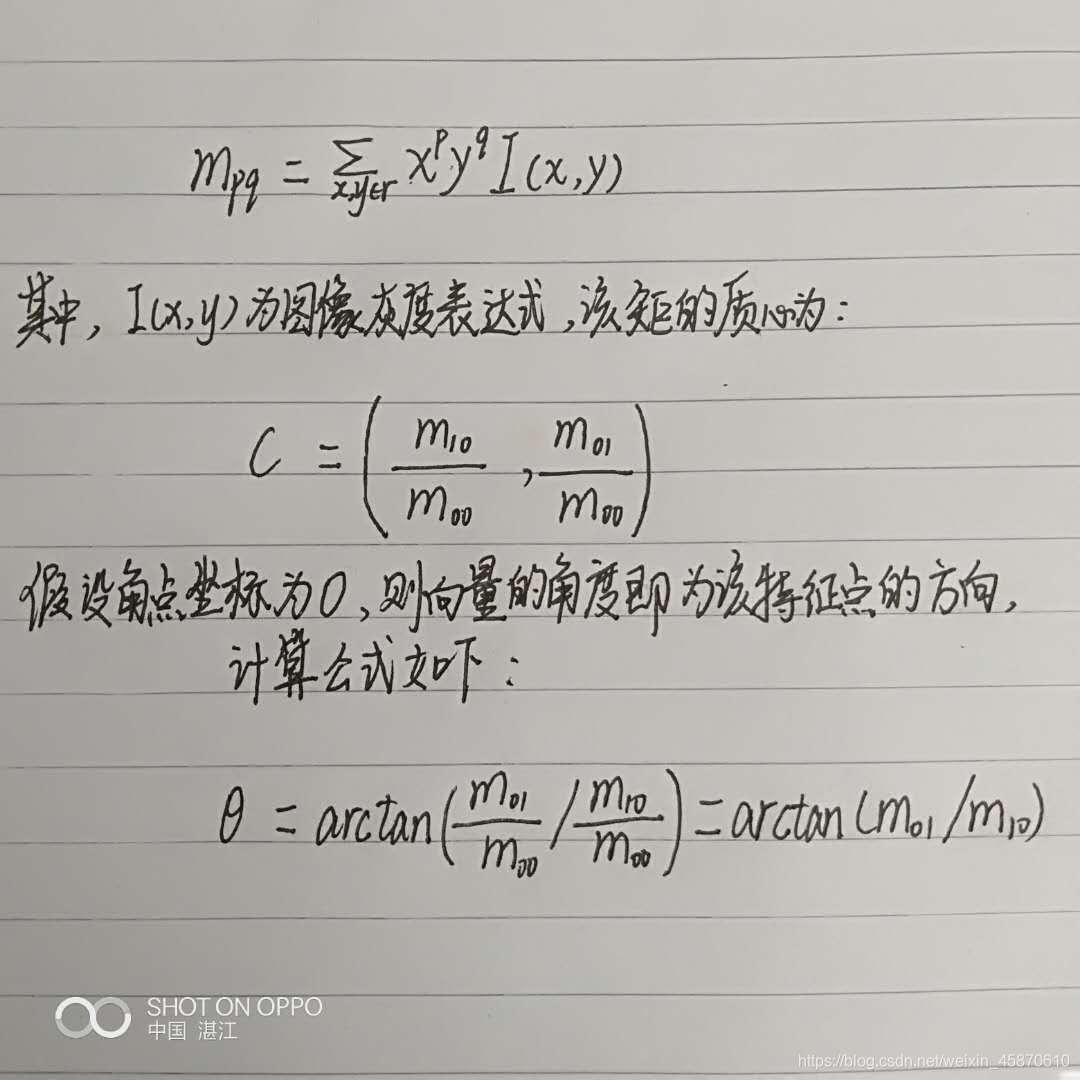 m_{pq} = \sum_{x,y∈r} x^p y^q I(x,y)
其中, I(x,y)为图像灰度表达式,该矩的质心为:
C = \left( \frac{m_{10}}{m_{00}}, \frac{m_{01}}{m_{00}} \right)
假设角点坐标为O,则向量的角度即为该特征点的方向,
计算公式如下:
θ = arctan\left( \frac{m_{01}}{m_{00}} / \frac{m_{10}}{m_{00}} \right) = arctan(m_{01}/m_{10})
SHOT ON OPPO
中国 湛江
https://blog.csdn.net/weixin_45870610